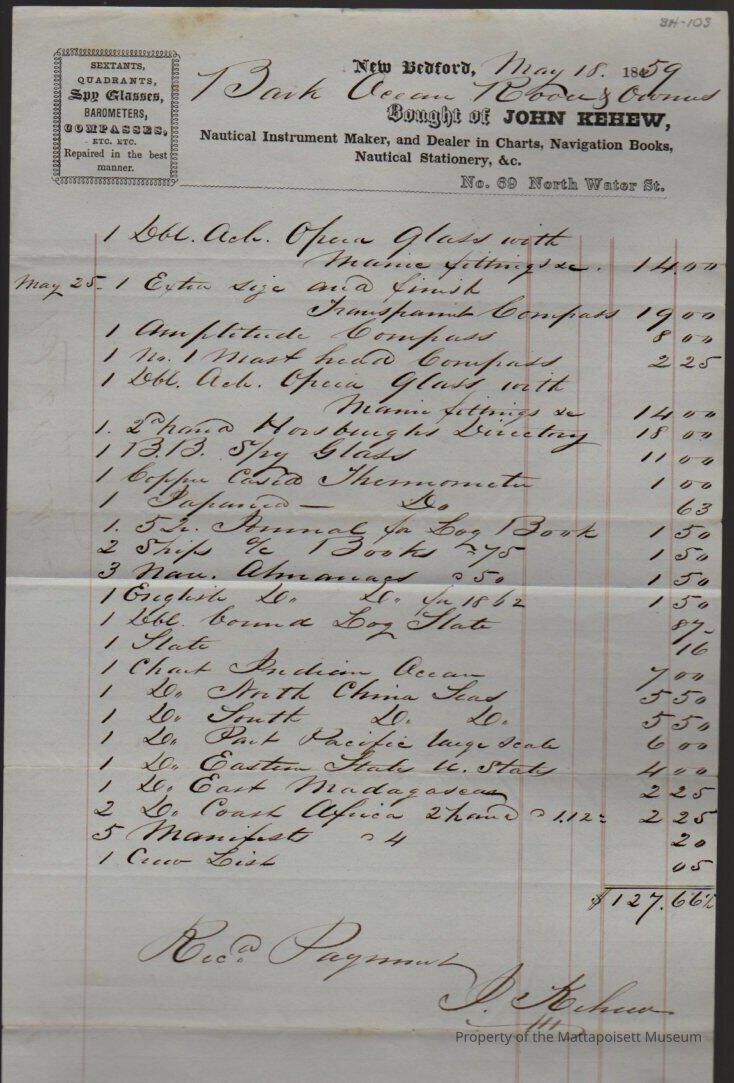 BH-103
SEXTANTS,
QUADRANTS,
Spy Glasses,
BAROMETERS,
COMPASSES,
ETC. ETC.
Repaired in the best
manner.
New Bedford, May 18. 1859
Bark Ocean Rover & Owners
Bought of JOHN KEHEW,
Nautical Instrument Maker, and Dealer in Charts, Navigation Books,
Nautical Stationery, &c.
No. 69 North Water St.
1 Dbl. Ach. Opera Glass with
Marine fittings &c. 14.00
May 25. 1 Extra size and finish
Transparent Compass 19 00
1 Amplitude Compass 8 00
1 No. 1 Mast head Compass 2 25
1 Dbl. Ach. Opera Glass with
Marine fittings &c 14 00
1. 2d hand Horsburghs Directory 18 00
1 B.B. Spy Glass 11 00
1 Copper Cased Thermometer 1 00
1 Japaned — Do 63
1. 5 Qr. Journal for Log Book 1 50
2 Ships a/c Books 75 1 50
3 Nau. Almanacs 50 1 50
1 English Do Do for 1862 1 50
1 Dbl. bound Log Slate 87
1 Slate 16
1 Chart Indian Ocean 7 00
1 Do North China Seas 5 50
1 Do South Do Do 5 50
1 Do Part Pacific large scale 6 00
1 Do Eastern States U. States 4 00
1 Do East Madagascar 2 25
2 Do Coast Africa 2 hand 1.12 2 25
5 Manifests 4 20
1 Crew List 05
$127.66
Recd Payment
J. Kehew
Property of the Mattapoisett Museum